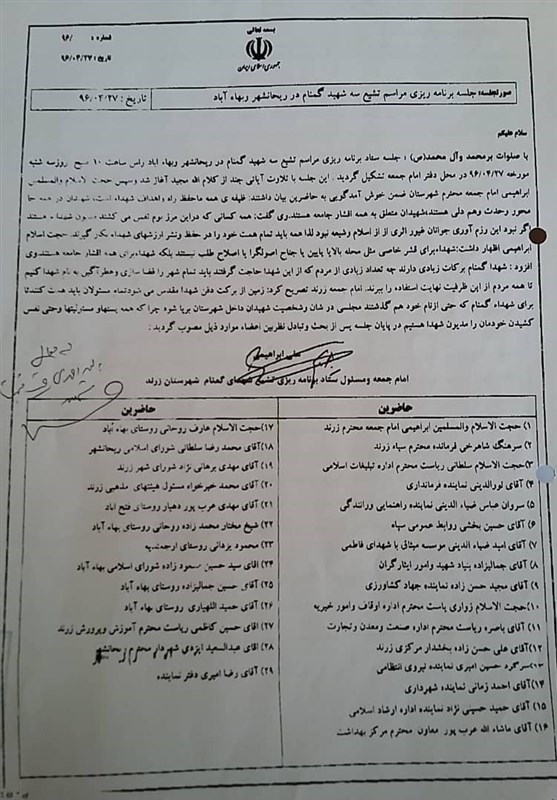 بسمه تعالی
جمهوری اسلامی ایران
شماره : ۹۶/
تاریخ : ۹۶/۰۴/۲۷
صورتجلسه: جلسه برنامه ریزی مراسم تشیع سه شهید گمنام در ریحانشهر وبهاء آباد
تاریخ : ۹۶/۰۴/۲۷
سلام علیکم
با صلوات برمحمد وآل محمد(ص) : جلسه ستاد برنامه ریزی مراسم تشیع سه شهید گمنام در ریحانشهر وبهاء اباد راس ساعت ۱۰ صبح روزسه شنبه
مورخه ۹۶/۰۴/۲۷ در محل دفتر امام جمعه تشکیل گردید . این جلسه با تلاوت آیاتی چند از کلام الله مجید آغاز شد وسپس حجت الاسلام والمسلمین
ابراهیمی امام جمعه محترم شهرستان ضمن خوش آمدگویی به حاضرین بیان داشتند: وظیفه ی همه ماحفظ راه واهداف شهداء است، شهیدان در همه جا
محور وحدت وهم دلی هستند،شهیدان متعلق به همه اقشار جامعه هستند.وی گفت: همه کسانی که دراین مرز بوم نفس می کشند مدیون شهداء هستند
اگر نبود این رزم آوری جوانان غیور اثری از از اسلام وشیعه نبود لذا همه باید تمام همت خود را در حفظ ونشر ارزشهای شهداء بکار گیرند. حجت اسلام
ابراهیمی اظهار داشت:شهداءبرای قشر خاصی مثل محله بالایا پایین یا جناح اصولگرا یا اصلاح طلب نیستند بلکه شهداءبرای همه اقشار جامعه هستند.وی
افزود : شهدا گمنام برکات زیادی دارند چه تعداد زیادی از مردم که از این شهدا حاجت گرفتند باید تمام شهر را فضا سازی وعطرآگین به نام شهدا کنیم
تا همه مردم از این ظرفیت نهایت استفاده را ببرند. امام جمعه زرند تصریح کرد: زمین از برکت دفن شهدا مقدس می شود.تمام مسئولان باید همت کنندتا
برای شهداء گمنام که حتی ازنام خود هم گذشتند مجلسی در شان وشخصیت شهیدان داخل شهرستان برپا شود چرا که همه پستهاو مسئولیتها وحتی نفس
کشیدن خودمان را مدیون شهدا هستیم در پایان جلسه پس از بحث وتبادل نظربین اعضاء موارد ذیل مصوب گردید :
علی ابراهیمی
امام جمعه ومسئول ستاد برنامه ریزی تشیع شهدای گمنام شهرستان زرند
حاضرین
۱) حجت الاسلام والمسلمین ابراهیمی امام جمعه محترم زرند
۲) سرهنگ شاهرخی فرمانده محترم سپاه زرند
۳)حجت الاسلام سلطانی ریاست محترم اداره تبلیغات اسلامی
۴) آقای نورالدینی نماینده فرمانداری
۵) سروان عباس ضیاء الدینی نماینده راهنمایی ورانندگی
۶) آقای حسین بخشی روابط عمومی سپاه
۷) آقای امید ضیاء الدینی موسسه میثاق با شهدای فاطمی
۸) آقای جمالیزاده بنیاد شهید وامور ایثارگران
۹) آقای مجید حسن زاده نماینده جهاد کشاورزی
۱۰)حجت الاسلام زواری یاست محترم اداره اوقاف وامور خیریه
۱۱) آقای باصره ریاست محترم اداره صنعت ومعدن وتجارت
۱۲) آقای علی حسن زاده بخشدار مرکزی زرند
۱۳)سرگرد حسین امیری نماینده نیروی انتظامی
۱۴)آقای احمد زمانی نماینده شهرداری
۱۵) آقای حمید حسینی نژاد نماینده اداره ارشاد اسلامی
۱۶) آقای ماشاء الله عرب پور معاون محترم مرکز بهداشت
حاضرین
۱۷)حجت الاسلام عارف روحانی روستای بهاء آباد
۱۸) آقای محمد رضا سلطانی شورای اسلامی ریحانشهر
۱۹) آقای مهدی برهانی نژاد شورای شهر زرند
۲۰) آقای محمد خیرخواه مسئول هیئتهای مذهبی زرند
۲۱) آقای مهدی عرب پور دهیار روستای فتح اباد
۲۲) شیخ مختار محمد زاده روحانی روستای بهاء آباد
۲۳) محمود یزدانی روستای ارجمندیه
۲۴) اقای سید حسین مسعود زاده شورای اسلامی بهاء آباد
۲۵) آقای حسین جمالیزاده روستای بهاء آباد
۲۶) آقای حمید اللهیاری روستای بهاء آباد
۲۷) اقای حسین کاظمی ریاست محترم آموزش وپرورش زرند
۲۸) اقای عبدالسعید ایزدی شهردار محترم ریحانشهر
۲۹) آقای رضا امیری دفتر نماینده